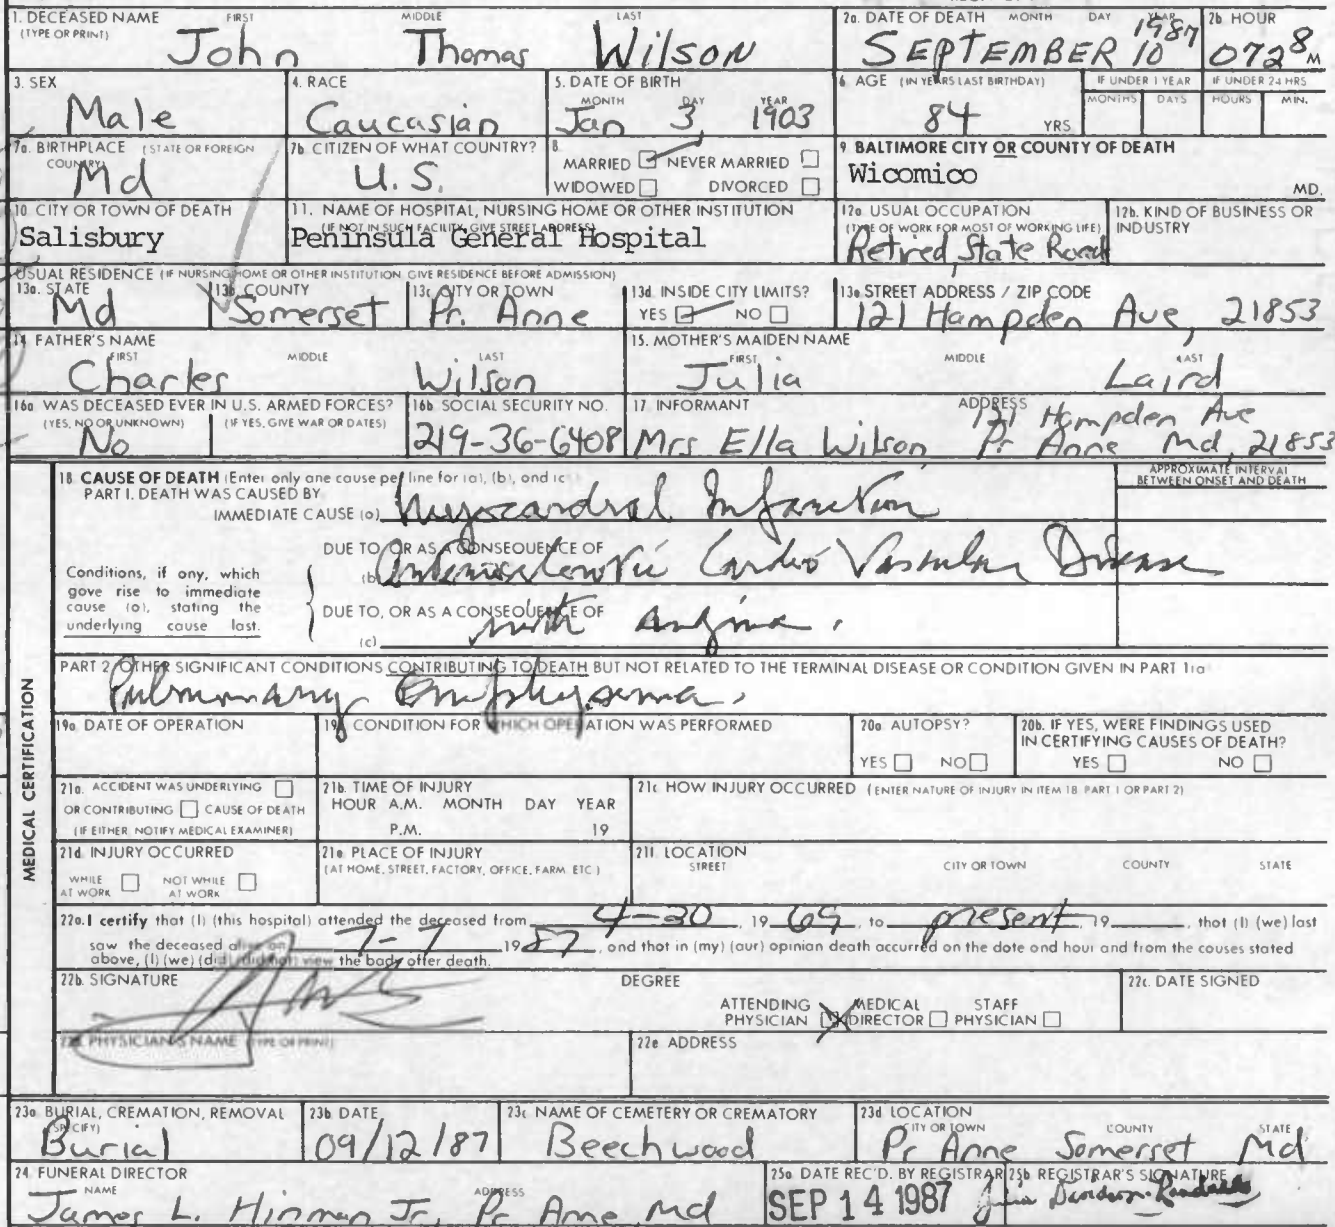 1. DECEASED NAME FIRST MIDDLE LAST
(TYPE OR PRINT)
John Thomas Wilson
2a. DATE OF DEATH MONTH DAY YEAR
SEPTEMBER 10 1987
2b HOUR
0728 M
3. SEX
Male
4. RACE
Caucasian
5. DATE OF BIRTH
MONTH DAY YEAR
Jan 3, 1903
6. AGE (IN YEARS LAST BIRTHDAY)
84 YRS
IF UNDER 1 YEAR
MONTHS DAYS
IF UNDER 24 HRS
HOURS MIN.
7a. BIRTHPLACE (STATE OR FOREIGN
COUNTRY)
Md
7b. CITIZEN OF WHAT COUNTRY?
U.S.
8.
MARRIED NEVER MARRIED
WIDOWED DIVORCED
9. BALTIMORE CITY OR COUNTY OF DEATH
Wicomico
MD.
10 CITY OR TOWN OF DEATH
Salisbury
11. NAME OF HOSPITAL, NURSING HOME OR OTHER INSTITUTION
(IF NOT IN SUCH FACILITY, GIVE STREET ADDRESS)
Peninsula General Hospital
12a USUAL OCCUPATION
(TYPE OF WORK FOR MOST OF WORKING LIFE)
Retired, State Road
12b. KIND OF BUSINESS OR
INDUSTRY
USUAL RESIDENCE (IF NURSING HOME OR OTHER INSTITUTION GIVE RESIDENCE BEFORE ADMISSION)
13a. STATE
Md
13b COUNTY
Somerset
13c CITY OR TOWN
Pr. Anne
13d. INSIDE CITY LIMITS?
YES NO
13e STREET ADDRESS / ZIP CODE
121 Hampden Ave, 21853
14 FATHER'S NAME
FIRST MIDDLE LAST
Charles Wilson
15. MOTHER'S MAIDEN NAME
FIRST MIDDLE LAST
Julia Laird
16a WAS DECEASED EVER IN U.S. ARMED FORCES?
(YES, NO OR UNKNOWN) (IF YES, GIVE WAR OR DATES)
No
16b SOCIAL SECURITY NO.
219-36-6408
17. INFORMANT ADDRESS
Mrs Ella Wilson 121 Hampden Ave
Pr Anne Md, 21853
MEDICAL CERTIFICATION
18 CAUSE OF DEATH (Enter only one cause per line for (a), (b), and (c)
PART I. DEATH WAS CAUSED BY
IMMEDIATE CAUSE (a) Myocardial Infarction
APPROXIMATE INTERVAL
BETWEEN ONSET AND DEATH
Conditions, if any, which
gave rise to immediate
cause (a), stating the
underlying cause last.
DUE TO, OR AS A CONSEQUENCE OF
(b) Arteriosclerotic Cardio Vascular Disease
DUE TO, OR AS A CONSEQUENCE OF
(c) with angina.
PART 2 OTHER SIGNIFICANT CONDITIONS CONTRIBUTING TO DEATH BUT NOT RELATED TO THE TERMINAL DISEASE OR CONDITION GIVEN IN PART 1(a)
Pulmonary Emphysema.
19a. DATE OF OPERATION
19b CONDITION FOR WHICH OPERATION WAS PERFORMED
20a AUTOPSY?
YES NO
20b. IF YES, WERE FINDINGS USED
IN CERTIFYING CAUSES OF DEATH?
YES NO
21a. ACCIDENT WAS UNDERLYING
OR CONTRIBUTING CAUSE OF DEATH
(IF EITHER NOTIFY MEDICAL EXAMINER)
21b. TIME OF INJURY
HOUR A.M. MONTH DAY YEAR
P.M. 19
21c HOW INJURY OCCURRED (ENTER NATURE OF INJURY IN ITEM 18 PART I OR PART 2)
21d INJURY OCCURRED
WHILE AT WORK NOT WHILE AT WORK
21e PLACE OF INJURY
(AT HOME, STREET, FACTORY, OFFICE, FARM, ETC.)
21f LOCATION
STREET CITY OR TOWN COUNTY STATE
22a. I certify that (I) (this hospital) attended the deceased from 4-30, 1969, to present, 19, that (I) (we) last
saw the deceased alive on 7-7 1987, and that in (my) (our) opinion death occurred on the date and hour and from the causes stated
above, (I) (we) (did) (did not) view the body after death.
22b. SIGNATURE
DEGREE
ATTENDING PHYSICIAN MEDICAL DIRECTOR STAFF PHYSICIAN
22c. DATE SIGNED
22d. PHYSICIAN'S NAME (TYPE OR PRINT)
22e ADDRESS
23a BURIAL, CREMATION, REMOVAL
(SPECIFY)
Burial
23b DATE
09/12/87
23c NAME OF CEMETERY OR CREMATORY
Beechwood
23d LOCATION
CITY OR TOWN COUNTY STATE
Pr Anne Somerset Md
24 FUNERAL DIRECTOR
NAME ADDRESS
James L. Hinman Jr, Pr Anne, Md
25a DATE REC'D. BY REGISTRAR
SEP 14 1987
25b REGISTRAR'S SIGNATURE